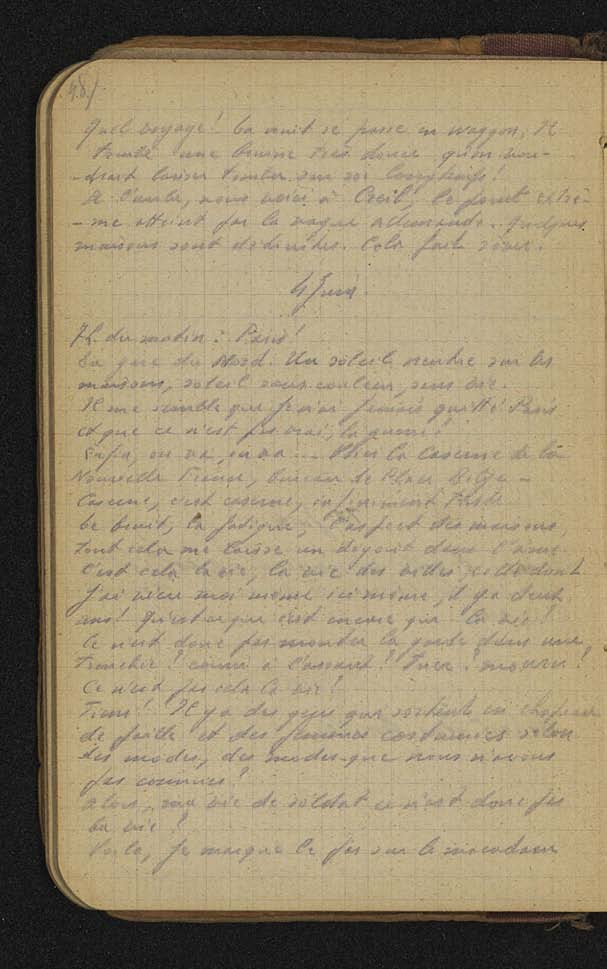 48/
Quel voyage! La nuit se passe en waggon, Il
tombe une brume très douce qu'on vou-
-drait laisser tomber sur soi longtemps!
A l'aube, nous voici à Creil, le point extrê-
-me atteint par la vague allemande. Quelques
maisons sont démolies. Cela fait rêver.
4 Juin.
7h. du matin: Paris!
La gare du Nord. Un soleil neutre sur les
maisons, soleil sans couleur, sans vie.
Il me semble que je n'ai jamais quitté Paris
et que ce n'est pas vrai, la guerre!
Enfin, on va, on va ... Vers la Caserne de la
Nouvelle France, bureau de Place Belge -
Caserne, c'est caserne, infiniment triste
Le bruit, la fatigue, l'aspect des maisons,
tout cela me laisse un dégoût dans l'âme.
C'est cela la vie, la vie des villes, celle dont
j'ai vécu moi-même ici même, il y a deux
ans! Qu'est ce que c'est encore que la vie?
Ce n'est donc pas monter la garde dans une
tranchée? courir à l'assaut? Tuer? mourir?
Ce n'est pas cela la vie!
Tiens! Il y a des gens qui sortent en chapeau
de paille et des femmes costumées selon
des modes, des modes que nous n'avons
pas connues?
Alors, ma vie de soldat ce n'est donc pas
la vie?
Voila, je marque le pas sur le macadam